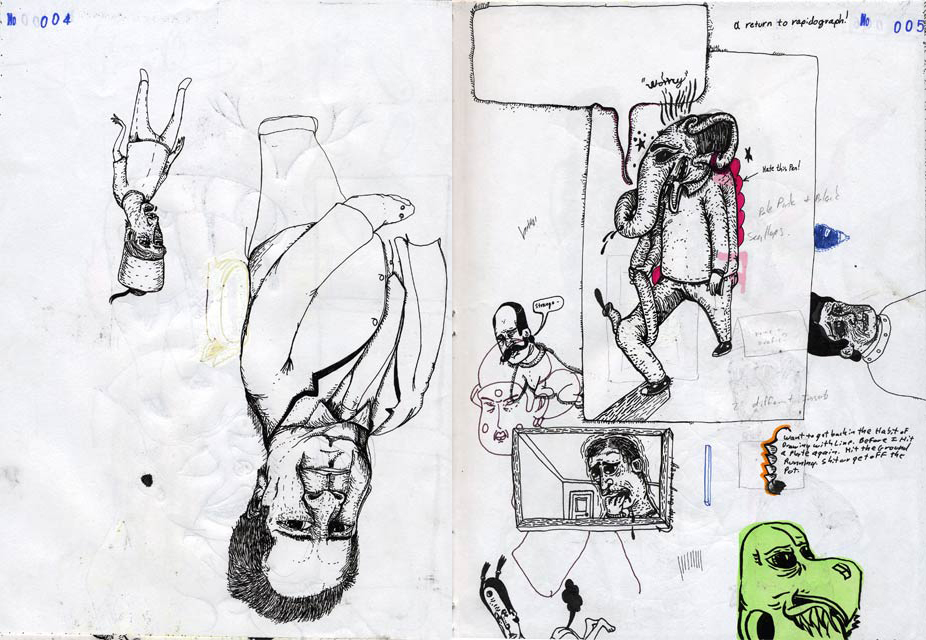 No 004
a return to rapidograph!
No 005
"worry"
Hate this Pen!
Pale Pink + Black
Strange..
2 different
I want to get back in the Habit of
Drawing with Line. Before I Hit
a Plate again. Hit the Ground
Running. Shit or get off the
Pot.